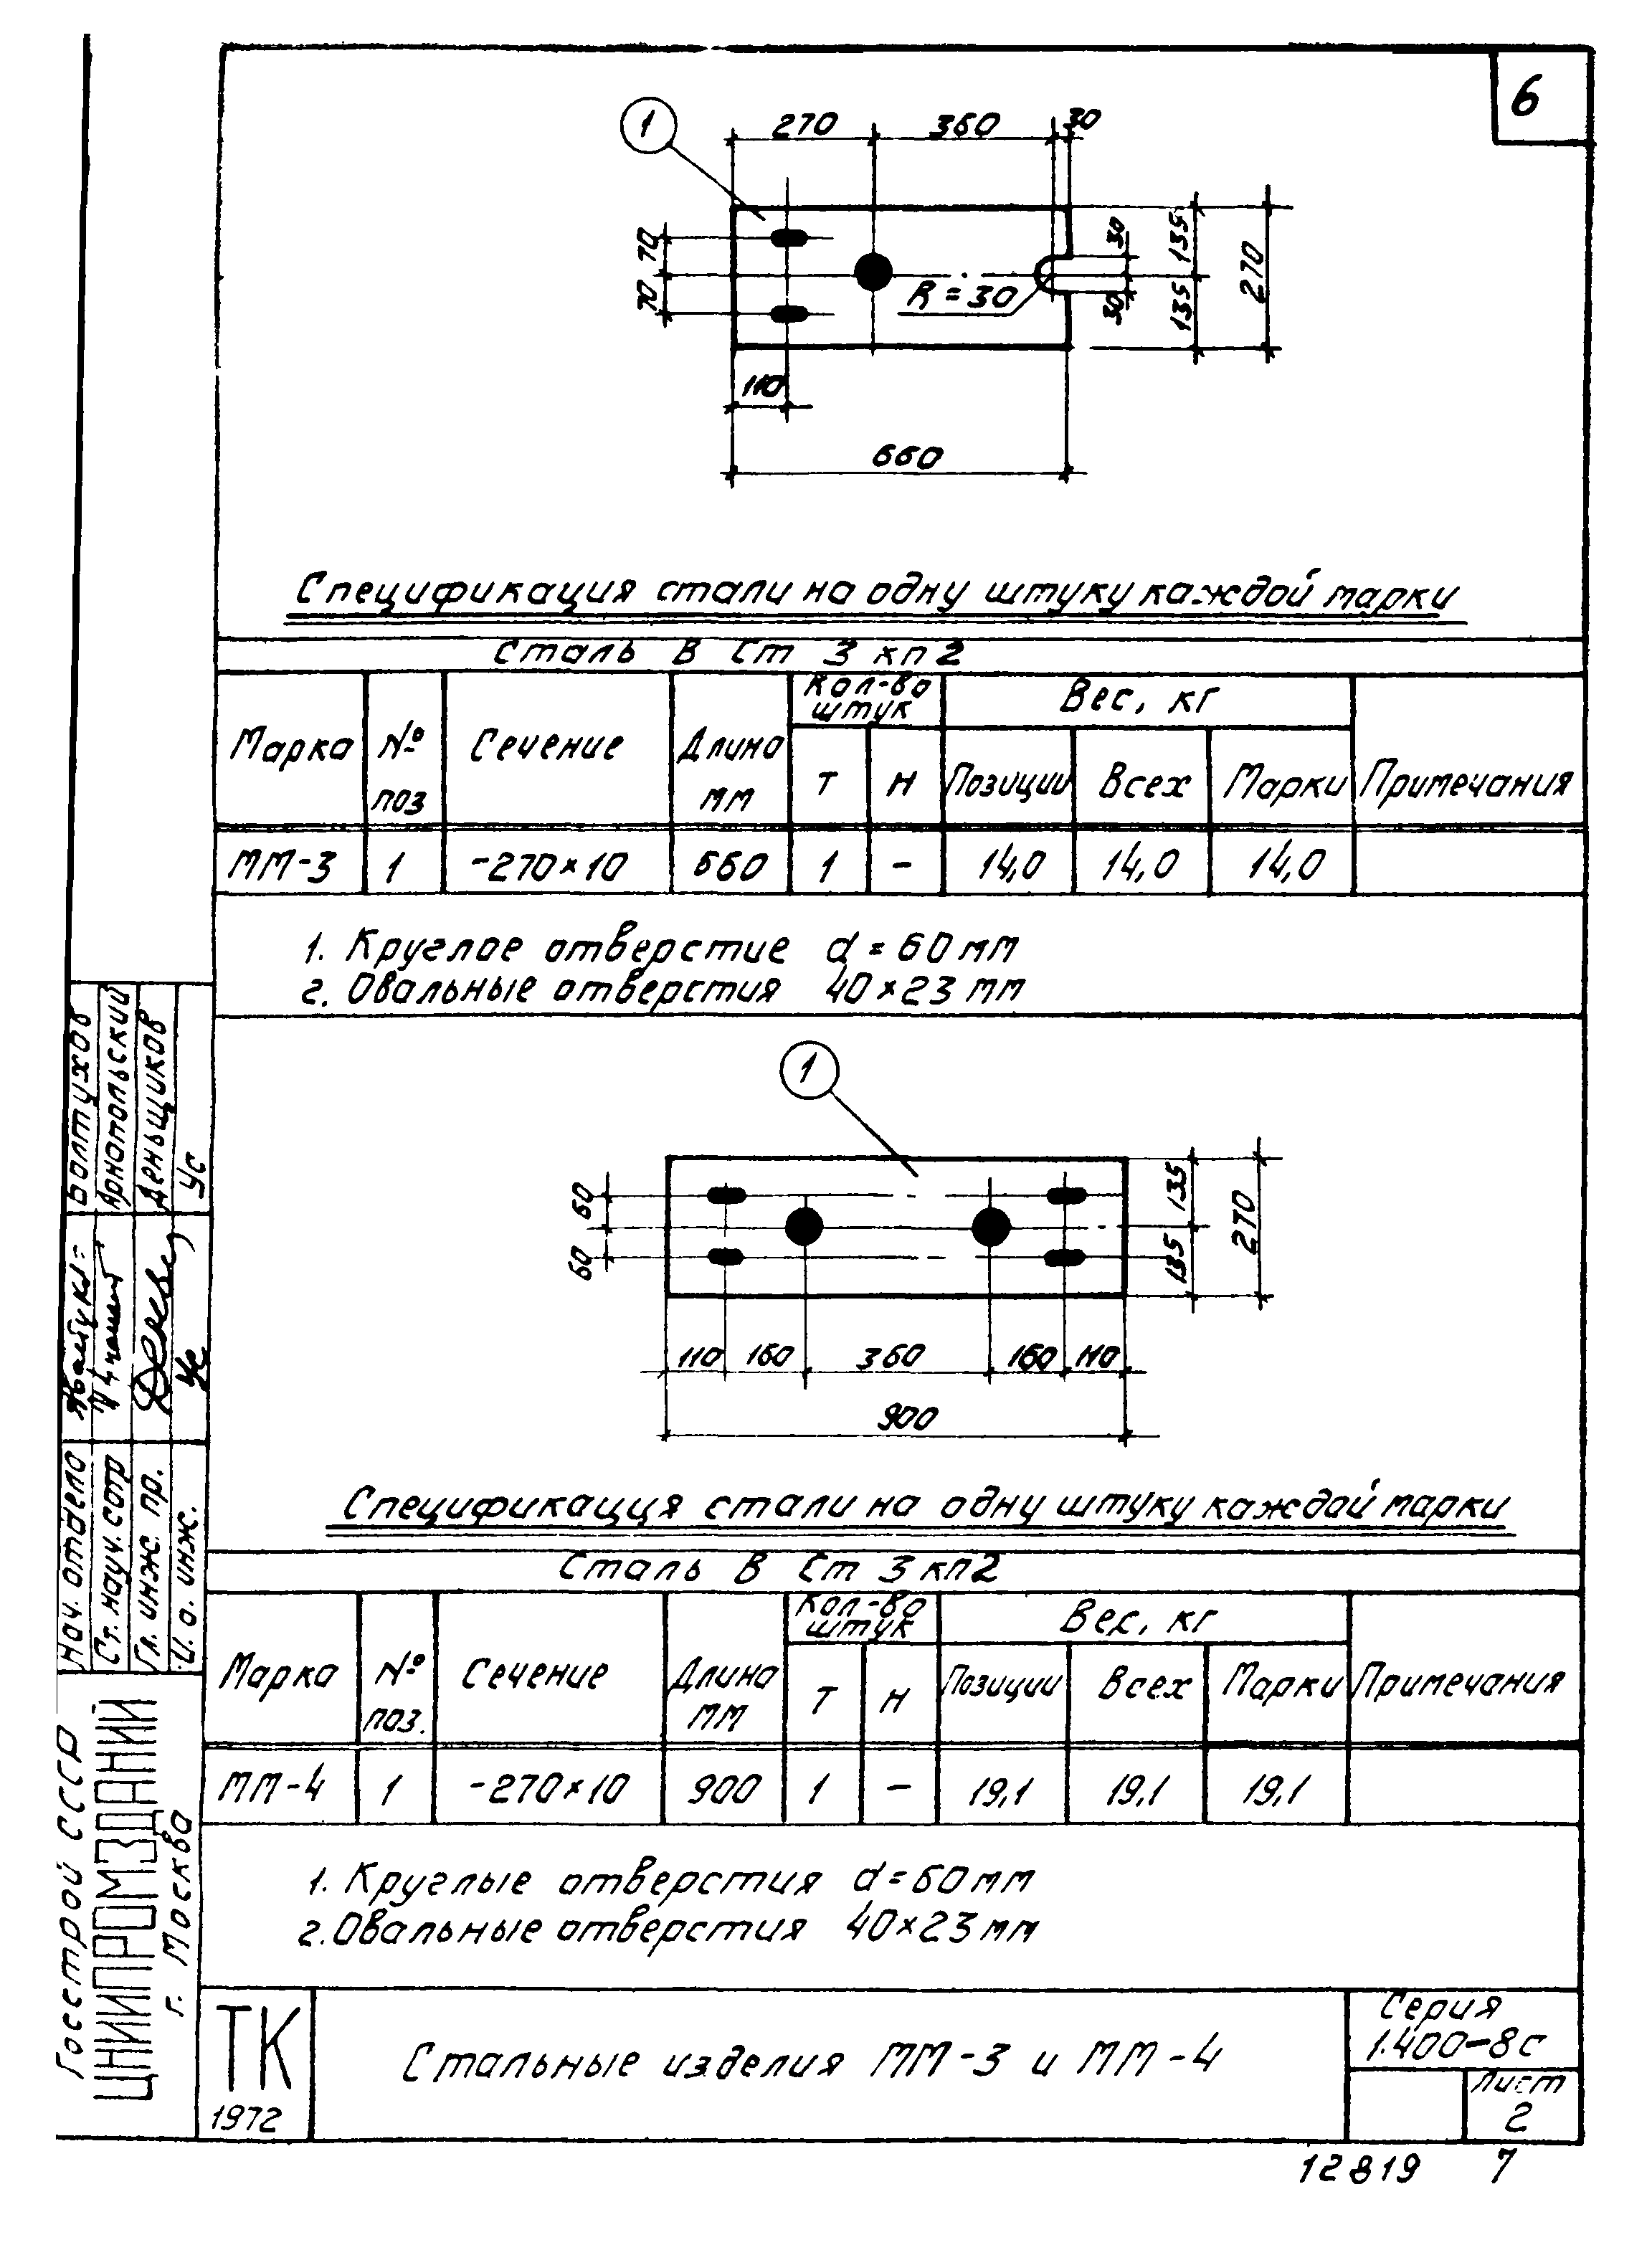 6
1
270 360 30
70 70
R = 30
30 30
135 135
270
110
660
Спецификация стали на одну штуку каждой марки
Сталь В Ст 3 кп2
Марка № поз Сечение Длина мм Кол-во штук Вес, кг Примечания
т н Позиции Всех Марки
ММ-3 1 -270×10 660 1 - 14,0 14,0 14,0
1. Круглое отверстие d = 60 мм
2. Овальные отверстия 40×23 мм
1
60 60
135 135
270
110 160 360 160 110
900
Спецификация стали на одну штуку каждой марки
Сталь В Ст 3 кп2
Марка № поз. Сечение Длина мм Кол-во штук Вес, кг Примечания
т н Позиции Всех Марки
ММ-4 1 -270×10 900 1 - 19,1 19,1 19,1
1. Круглые отверстия d=60 мм
2. Овальные отверстия 40×23 мм
Нач. отдела Болтухов
Ст. науч. сотр Арнопольский
Гл. инж. пр. Деньщиков
И. о. инж. Ус Ус
Госстрой СССР
ЦНИИПРОМЗДАНИЙ
г. Москва
ТК
1972
Стальные изделия ММ-3 и ММ-4
Серия
1.400-8с
Лист
2
12819 7